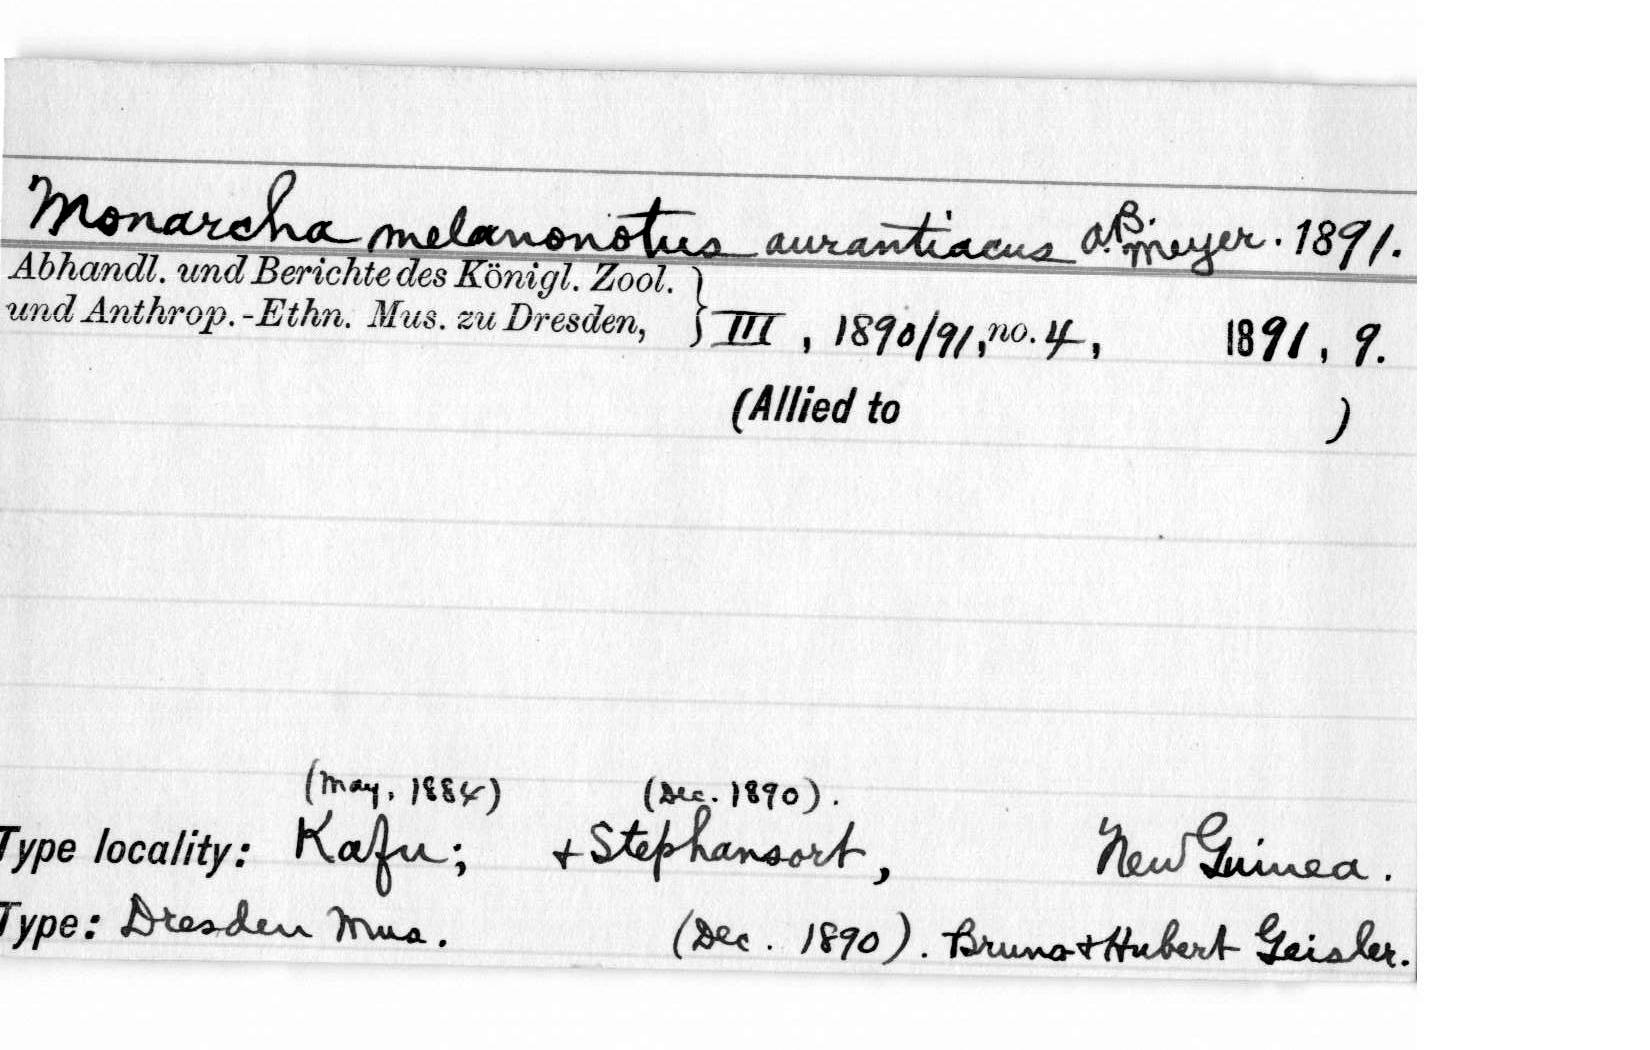 Monarcha melanonotus aurantiacus A.B. Meyer. 1891.
Abhandl. und Berichte des Königl. Zool.
und Anthrop.-Ethn. Mus. zu Dresden, } III, 1890/91, no. 4, 1891, 9.
(Allied to )
(May, 1884) (Dec. 1890).
Type locality: Kafu; + Stephansort, New Guinea.
Type: Dresden Mus. (Dec. 1890). Bruno + Hubert Geisler.